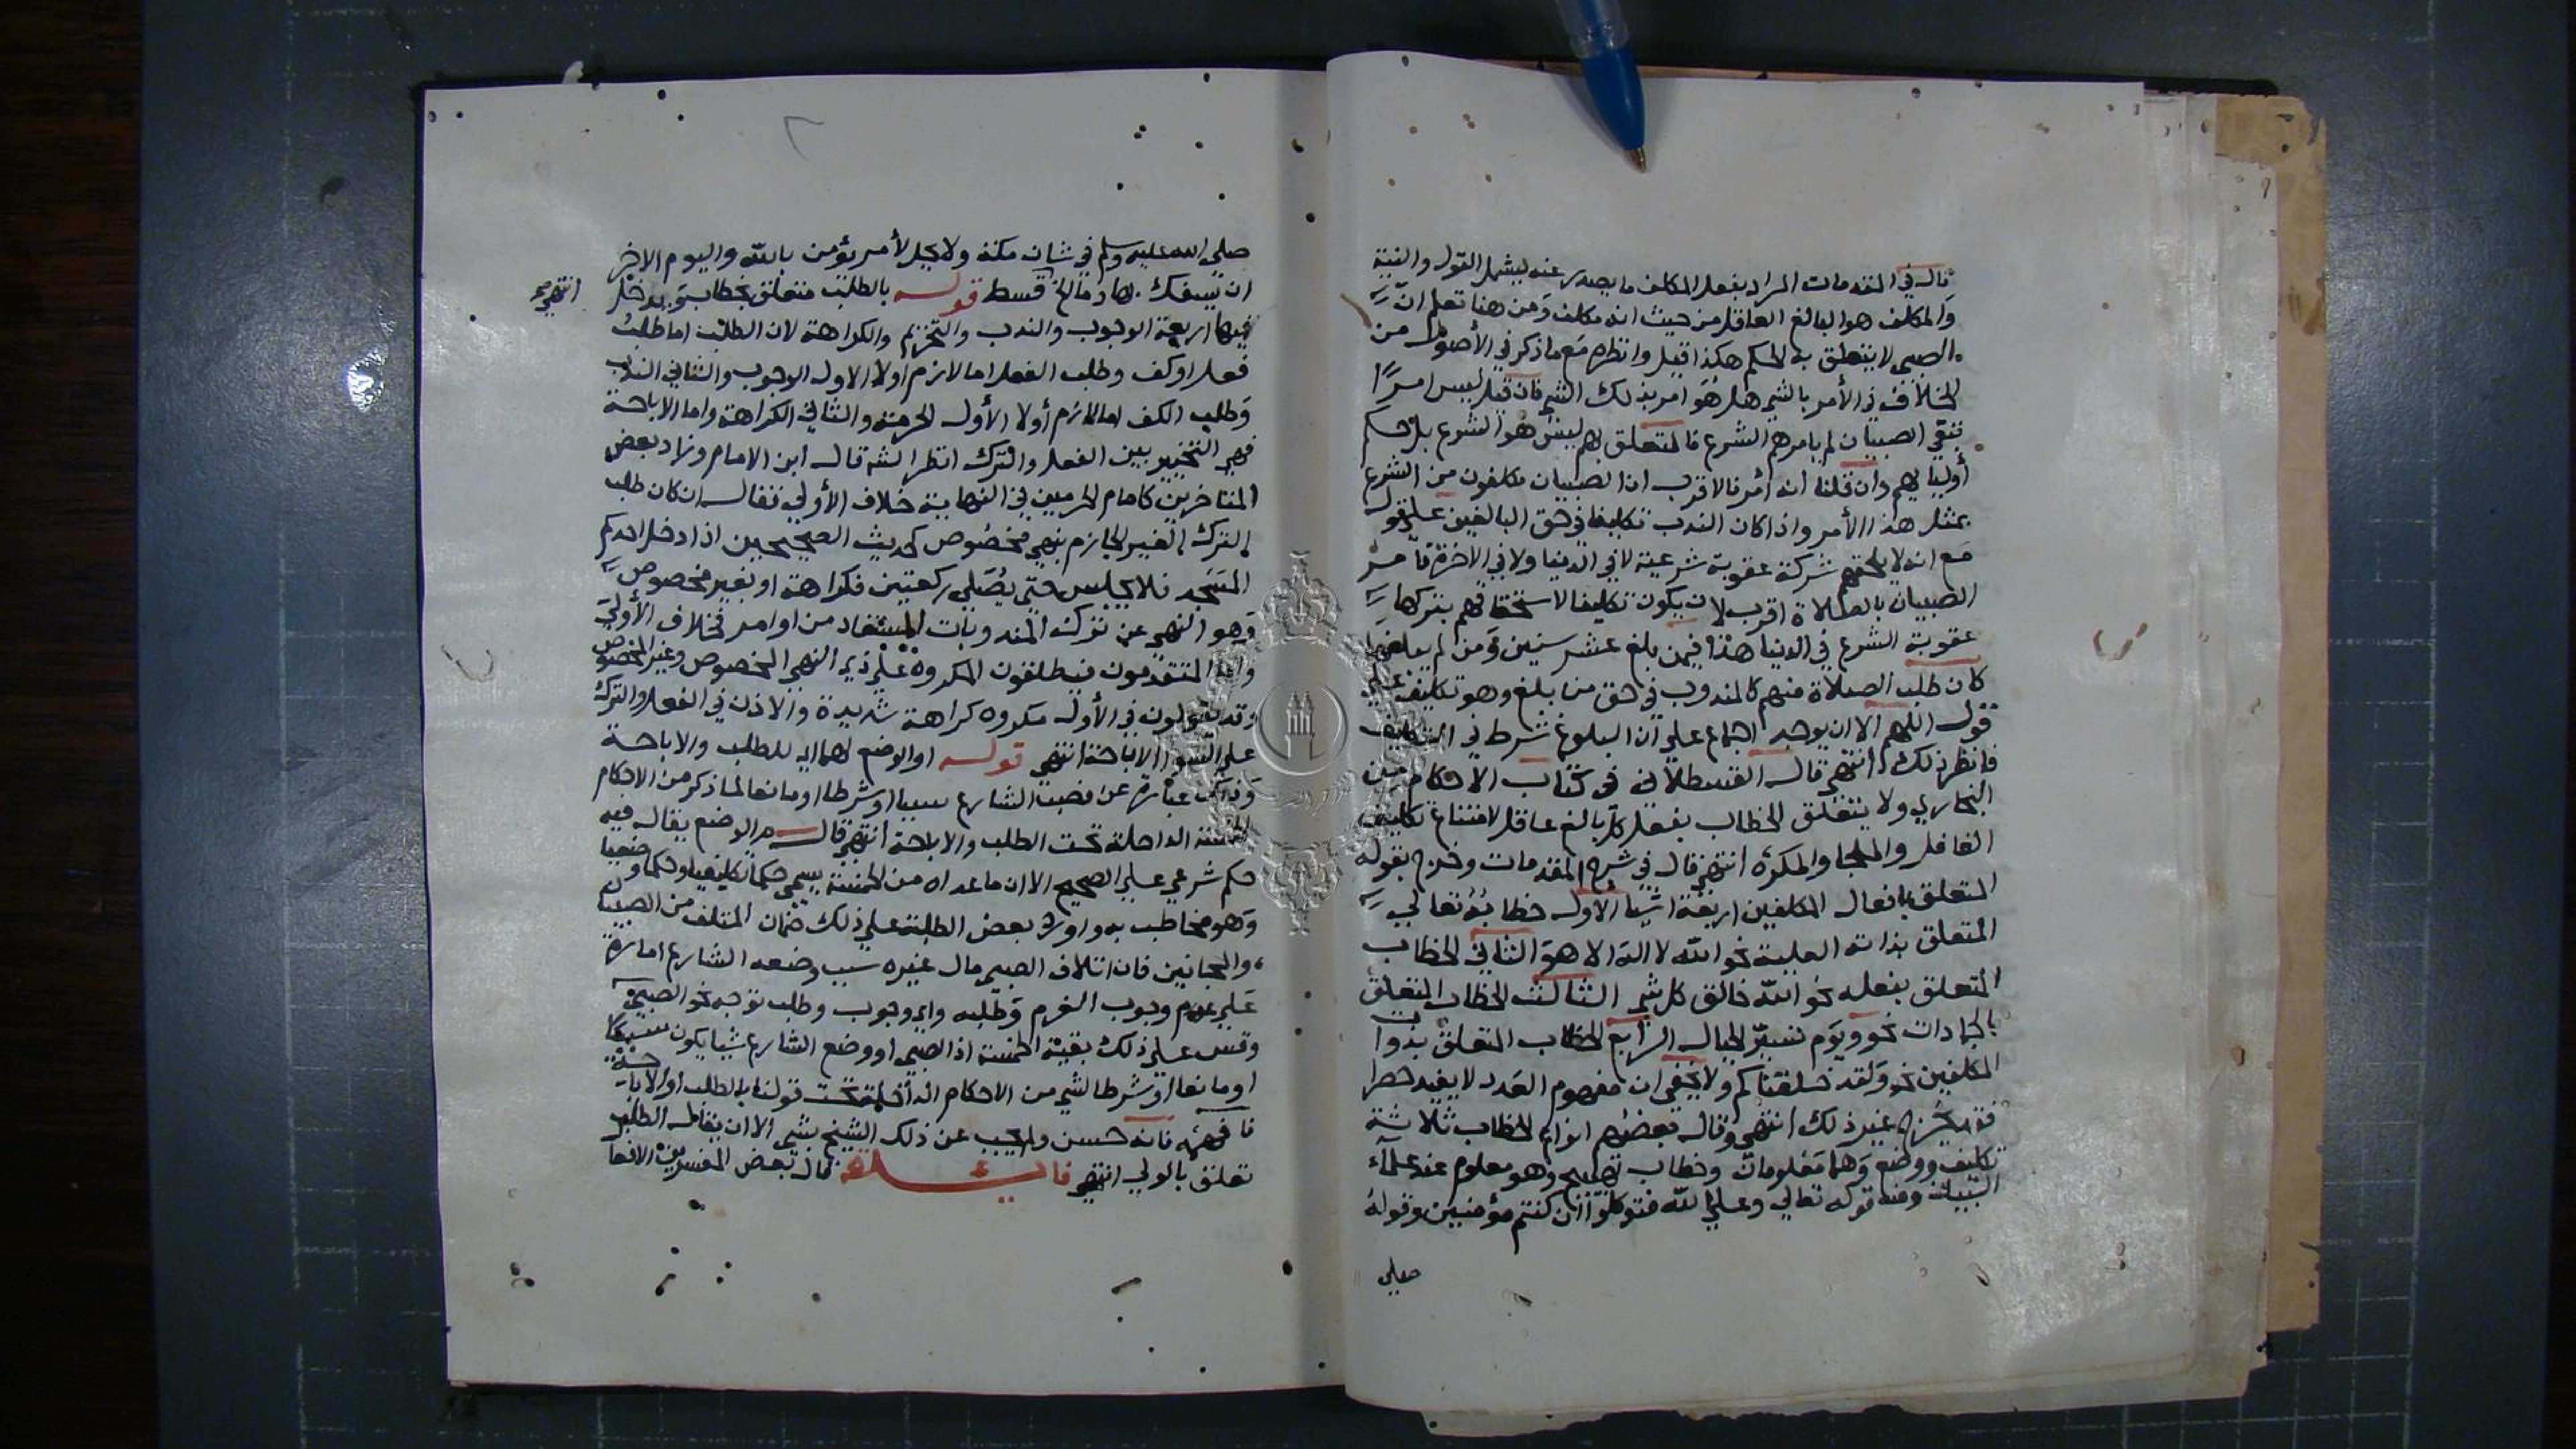 قال في المقدمات المراد بفعل المكلف ما يصدر عنه ليشمل القول والنية
والمكلف هو البالغ العاقل من حيث انه مكلف ومن هنا تعلم انّ
الصبي لا يتعلق به الحكم هكذا قيل وانظره مع ما ذكر في الأصول من
الخلاف في الأمر بالشيء هل هو امر بذلك الشيء فان قيل ليس امرًا
بقي الصبيان لم يامرهم الشرع فالمتعلق بهم ليس هو الشرع بل حكم
أوليايهم وان قلنا انه أمر فالاقرب ان الصبيان مكلفون من الشرع
بمثل هذا الأمر واذا كان الندب تكليفا في حق البالغين على قول
مع انه لا يلحقهم بتركه عقوبة شرعية لا في الدنيا ولا في الاخرة فأمر
الصبيان بالصلاة اقرب لان يكون تكليفا لاستحقاقهم بتركها
عقوبة الشرع في الدنيا هذا فيمن بلغ عشر سنين ومن لم يبلغها
كان طلب الصلاة منهم كالمندوب في حق من بلغ وهو تكليف على
قول اللهم الا ان يوجد اجماع على ان البلوغ شرط في التكليف
فانظر ذلك انتهى قال القسطلاني في كتاب الاحكام من
البخاري ولا يتعلق الخطاب بفعل كل بالغ عاقل لامتناع تكليف
الغافل والملجا والمكره انتهى قال في شرح المقدمات وخرج بقوله
المتعلق بافعال المكلفين اربعة اشيا الأول خطابه تعالى
المتعلق بذاته العلية نحو الله لا اله الا هو الثاني الخطاب
المتعلق بفعله نحو الله خالق كل شيء الثالث الخطاب المتعلق
بالجمادات نحو ويوم نسير الجبال الرابع الخطاب المتعلق بذوات
المكلفين نحو ولقد خلقناكم ولا يخفى ان مفهوم العدد لا يفيد حصرا
فقد يخرج غير ذلك انتهى وقال بعضهم انواع الخطاب ثلاثة
تكليف ووضع وهما معلومان وخطاب تهييج وهو معلوم عند علمآء
البيان ومنه قوله تعالى وعلى الله فتوكلوا ان كنتم مؤمنين وقوله
صلى
صلى الله عليه وسلم في شان مكة ولا يحل لأمرء يؤمن بالله واليوم الاخر
ان يسفك بها دما انتهى قسط قوله بالطلب متعلق بخطاب ويدخل
انتهى صح
فيها اربعة الوجوب والندب والتحريم والكراهة لان الطلب اما طلب
فعل او كف وطلب الفعل اما لازم اولا الاول الوجوب والثاني الندب
وطلب الكف اما لازم أولا الأول الحرمة والثاني الكراهة واما الاباحة
فهي التخيير بين الفعل والترك انظر الشه قال ابن الامام وزاد بعض
المتاخرين كامام الحرمين في النهاية خلاف الأولى فقال ان كان طلب
الترك الغير الجازم بنهي مخصوص كحديث الصحيحين اذا دخل احدكم
المسجد فلا يجلس حتى يصلي ركعتين فكراهة او بغير مخصوص
وهو النهي عن ترك المندوبات المستفاد من اوامر فخلاف الأولى
واما المتقدمون فيطلقون المكروه على ذي النهي المخصوص وغير المخصوص
وقد يقولون في الأول مكروه كراهة شديدة والاذن في الفعل والترك
على السوا الاباحة انتهى قوله او الوضع لهما اي للطلب والاباحة
وذلك عبارة عن نصب الشارع سببا او شرطا او مانعا لما ذكر من الاحكام
الخمسة الداخلة تحت الطلب والاباحة انتهى قال والوضع يقال فيه
حكم شرعي على الصحيح الا ان ما عداه من الخمسة يسمى حكما تكليفيا وحكما وضعيا
وهو مخاطب به واورد بعض الطلبة على ذلك ضمان المتلف من الصبيان
والمجانين فان اتلاف الصبي مال غيره سبب وضعه الشارع امارة
على عدم وجوب الغرم وطلبه واي وجوب وطلب توجه نحو الصبي
وقس على ذلك بقية الخمسة اذ الصبي او وضع الشارع شيا يكون سببا
او مانعا او شرطا لشيء من الاحكام الداخلة تحت قولنا بالطلب او الاباحة
فافهمه فانه حسن واجيب عن ذلك الشيخ بشيء الا ان يقال الطلب
تعلق بالولي انتهى فايدة قال بعض المفسرين الافعا